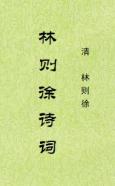 林则徐诗词
清 林则徐